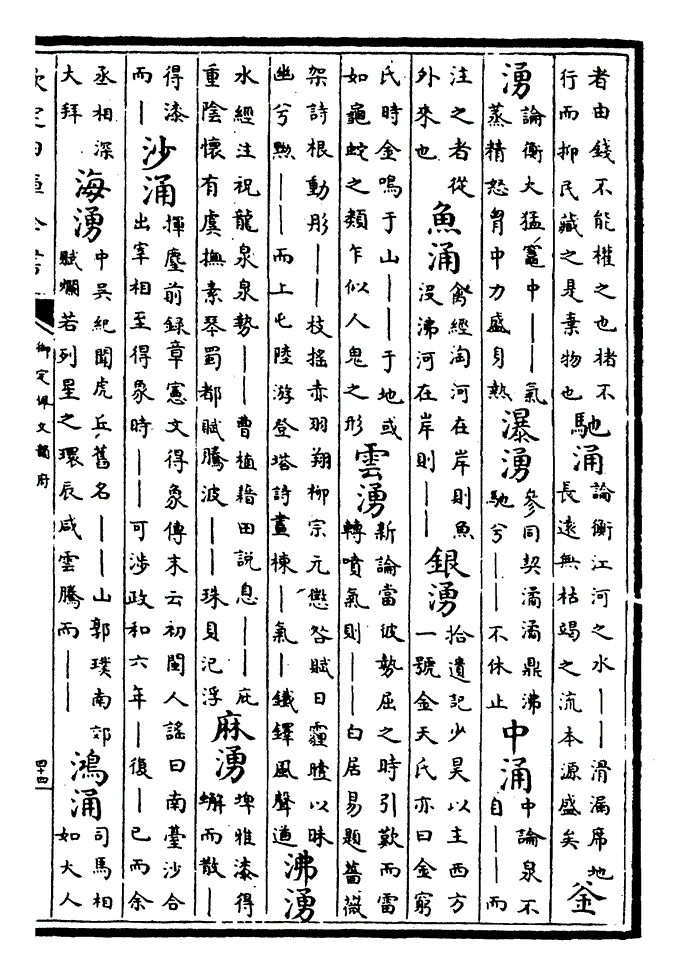 者由錢不能權之也褚不
行而抑民藏之是棄物也
馳涌
論衡江河之水——滑漏席地
長遠無枯竭之流本源盛矣
釡
湧
論衡火猛竈中——氣
蒸精怒胃中力盛身熱
瀑湧
參同契潏潏鼎沸
馳兮——不休止
中涌
中論泉不
自——而
注之者從
外來也
魚涌
禽經淘河在岸則魚
没沸河在岸則——
銀湧
拾遺記少昊以主西方
一號金天氏亦曰金窮
氏時金鳴于山——于地或
如龜蛇之類乍似人鬼之形
雲湧
新論當彼勢屈之時引歎而雷
轉噴氣則——白居易題薔薇
架詩根動彤——枝搖赤羽翔柳宗元懲咎賦曰霾曀以昧
幽兮黝——而上屯陸游登塔詩畫棟—氣—鐵鐸風聲遒
沸湧
水經注祝龍泉泉勢——曹植藉田說息——庇
重陰懷有虞撫素琴蜀都賦騰波——珠貝汜浮
麻湧
埤雅漆得
蠏而散—
得漆
而—
沙涌
揮麈前録章憲文得象傳末云初閩人謡曰南臺沙合
出宰相至得象時——可涉政和六年—復—已而余
丞相深
大拜
海湧
中吳紀聞虎丘舊名——山郭璞南郊
賦爛若列星之環辰咸雲騰而——
鴻涌
司馬相
如大人
欽定四庫全書
御定佩文韻府
四十四